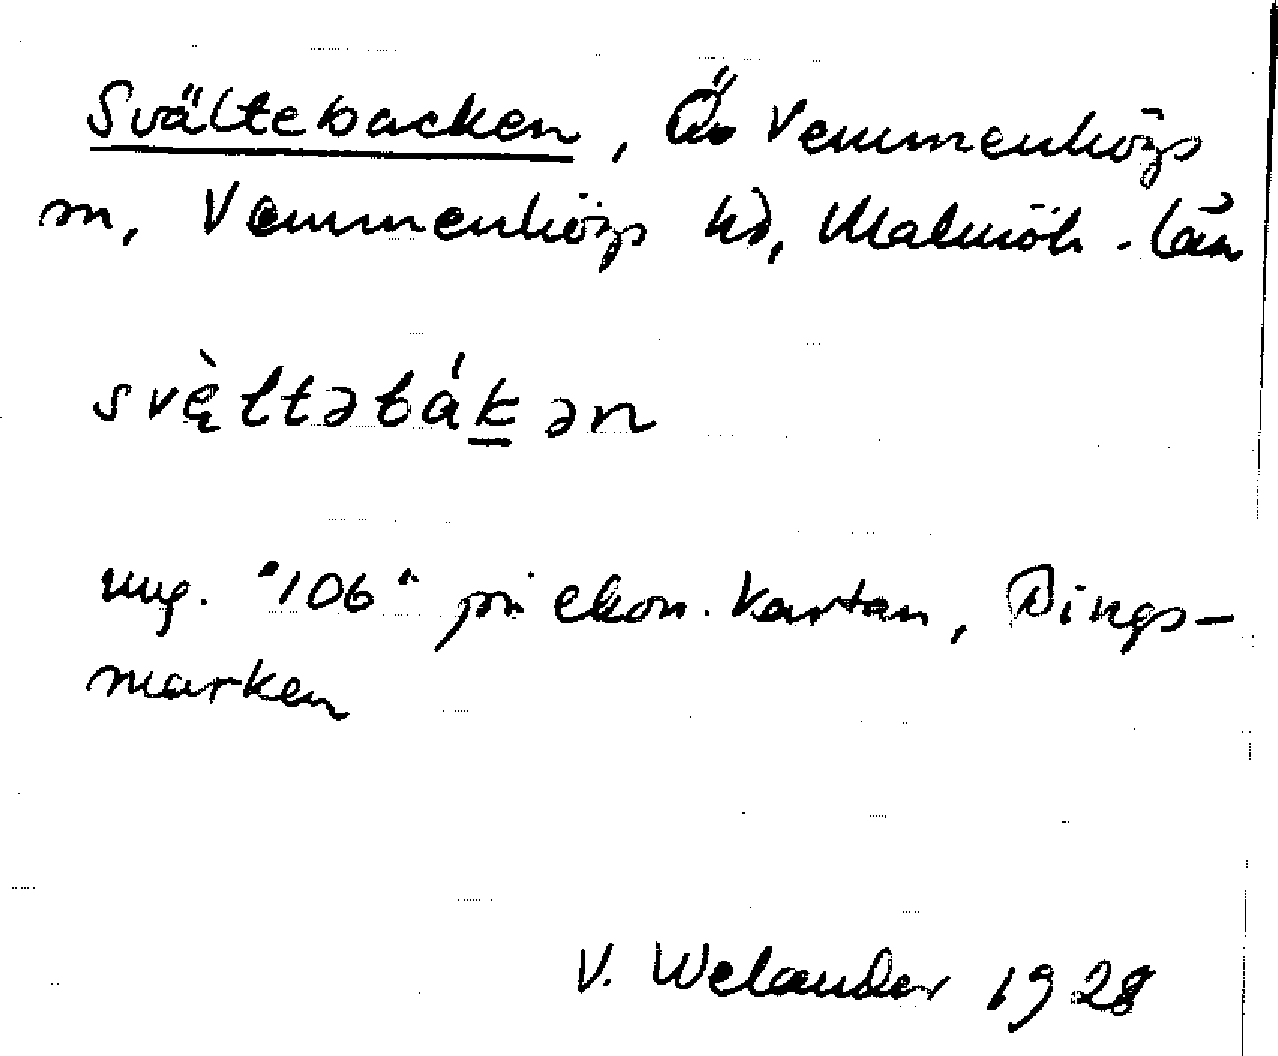 Svältebacken, Ö. Vemmenhögs
sn, Vemmenhögs hd, Malmöh. län
svę̀ltəbák̲ən
ung. "106" på ekon. kartan, Dings-
marken
V. Welander 1928